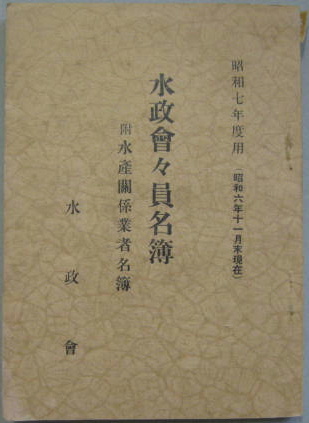 昭和七年度用(昭和六年十一月末現在)
水政會々員名簿
附水產關係業者名簿
水政會